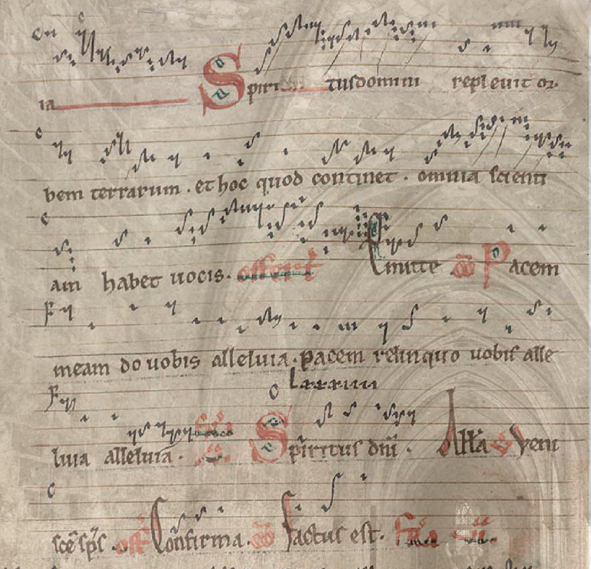 ia Spiritus domini repleuit or
bem terrarum . et hoc quod continet . omnia scienti
am habet uocis . Emitte Pacem
meam do uobis alleluia . pacem relinquo uobis alle
luia alleluia . Spiritus dñi . Alła Veni
sce sps . Confirma . Factus est .